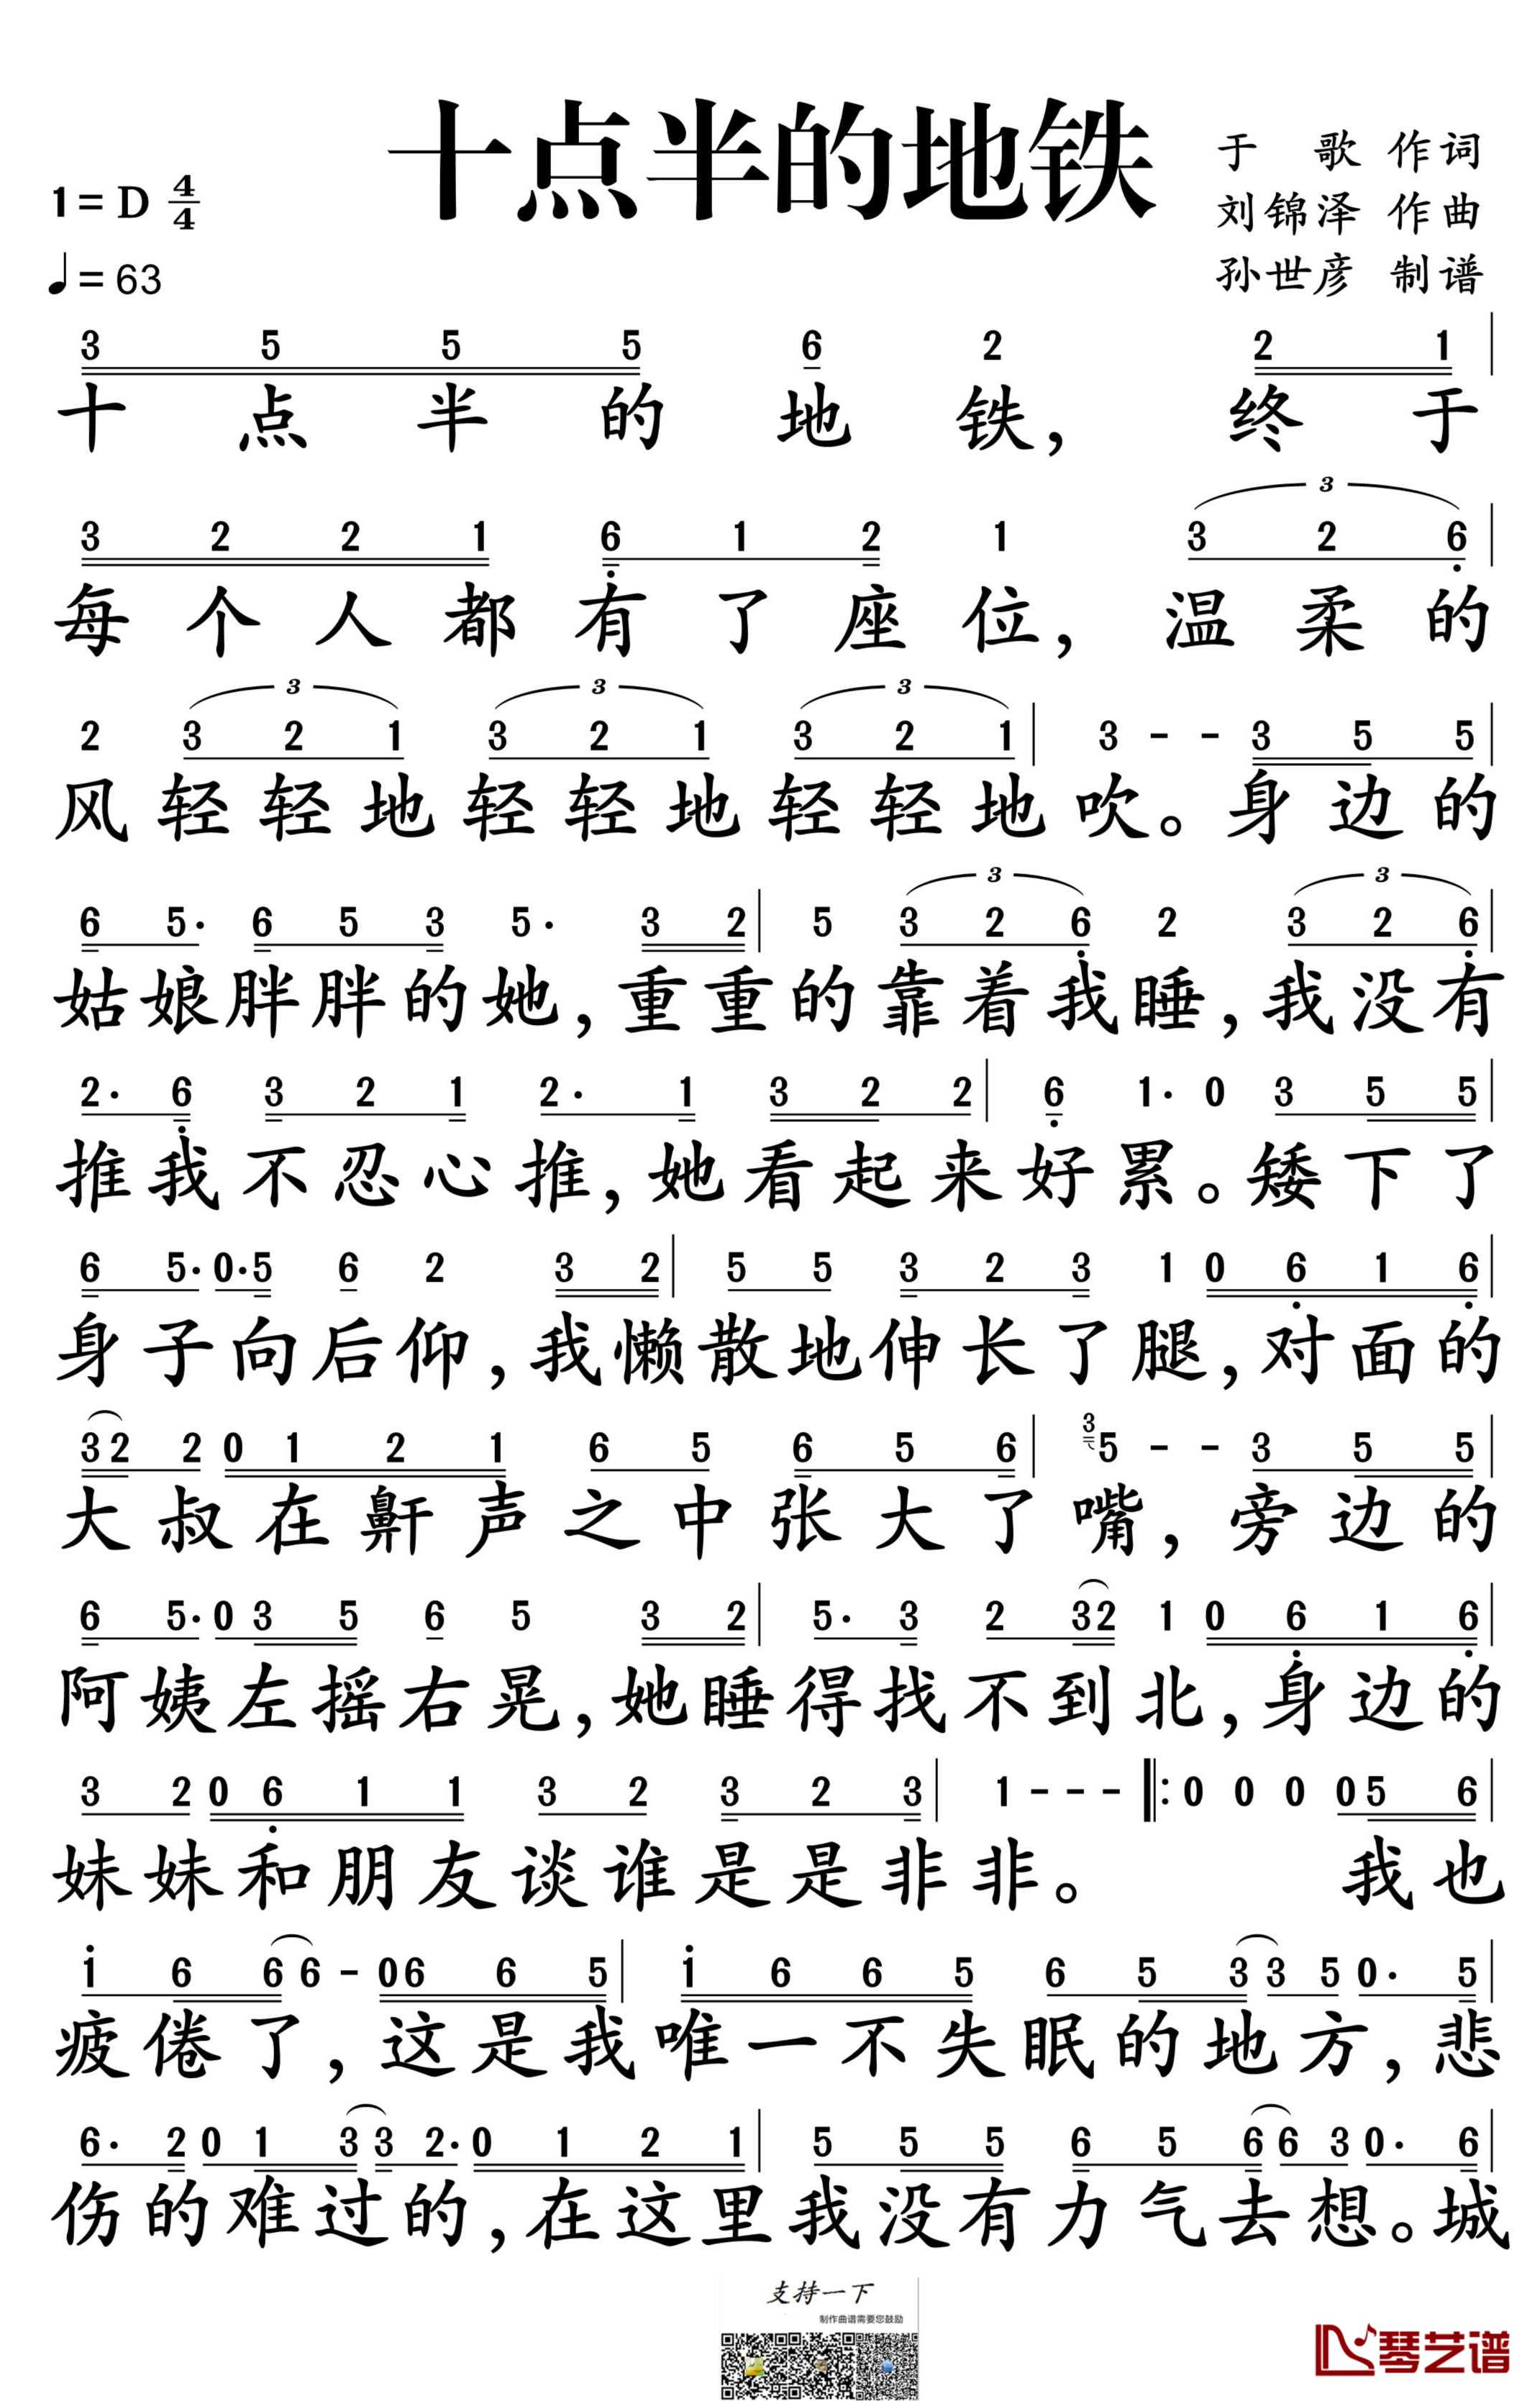 十点半的地铁
于 歌 作词
1= D 4/4
刘锦泽 作曲
♩= 63
孙世彦 制谱
3 5 5 5 6 2 2 1
十点半的地铁，终于
3
3 2 2 1 6 1 2 1 3 2 6
每个人都有了座位，温柔的
3 3 3
2 3 2 1 3 2 1 3 2 1 | 3 - - 3 5 5
风轻轻地轻轻地轻轻地吹。身边的
3 3
6 5· 6 5 3 5· 3 2 | 5 3 2 6 2 3 2 6
姑娘胖胖的她，重重的靠着我睡，我没有
2· 6 3 2 1 2· 1 3 2 2 | 6 1· 0 3 5 5
推我不忍心推，她看起来好累。矮下了
6 5· 0· 5 6 2 3 2 | 5 5 3 2 3 1 0 6 1 6
身子向后仰，我懒散地伸长了腿，对面的
3 2 2 0 1 2 1 6 5 6 5 6 | 3 5 - - 3 5 5
大叔在鼾声之中张大了嘴，旁边的
6 5· 0 3 5 6 5 3 2 | 5· 3 2 3 2 1 0 6 1 6
阿姨左摇右晃，她睡得找不到北，身边的
3 2 0 6 1 1 3 2 3 2 3 | 1 - - - |: 0 0 0 0 5 6
妹妹和朋友谈谁是是非非。 我也
1 6 6 6 - 0 6 6 5 | 1 6 6 5 6 5 3 3 5 0· 5
疲倦了，这是我唯一不失眠的地方，悲
6· 2 0 1 3 3 2· 0 1 2 1 | 5 5 5 6 5 6 6 3 0· 6
伤的难过的，在这里我没有力气去想。城
支持一下
制作曲谱需要您鼓励
琴艺谱